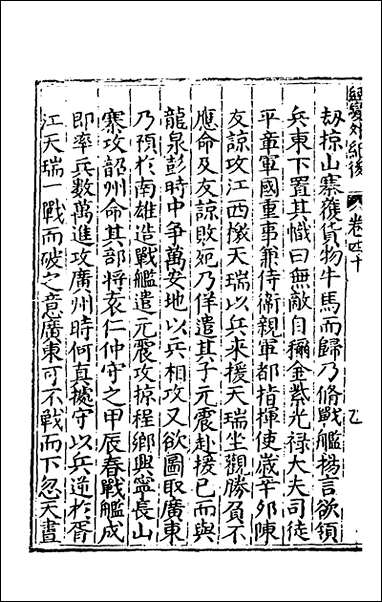 劫掠山寨獲貨物牛馬而歸乃脩戰艦揚言欲領
兵東下置其幟曰無敵自稱金紫光禄大夫司徒
平章軍國重事兼侍衛親軍都指揮使嵗辛夘陳
友諒攻江西檄天瑞以兵來援天瑞坐觀勝負不
應命及友諒敗死乃佯遣其子元震赴援已而與
龍泉彭時中争萬安地以兵相攻又欲圖取廣東
乃預於南雄造戰艦遣元震攻掠程鄉興寧長山
寨攻韶州命其部將袁仁仲守之甲辰春戰艦成
即率兵數萬進攻廣州時何真據守以兵逆於胥
江天瑞一戰而破之意廣東可不戰而下忽天晝